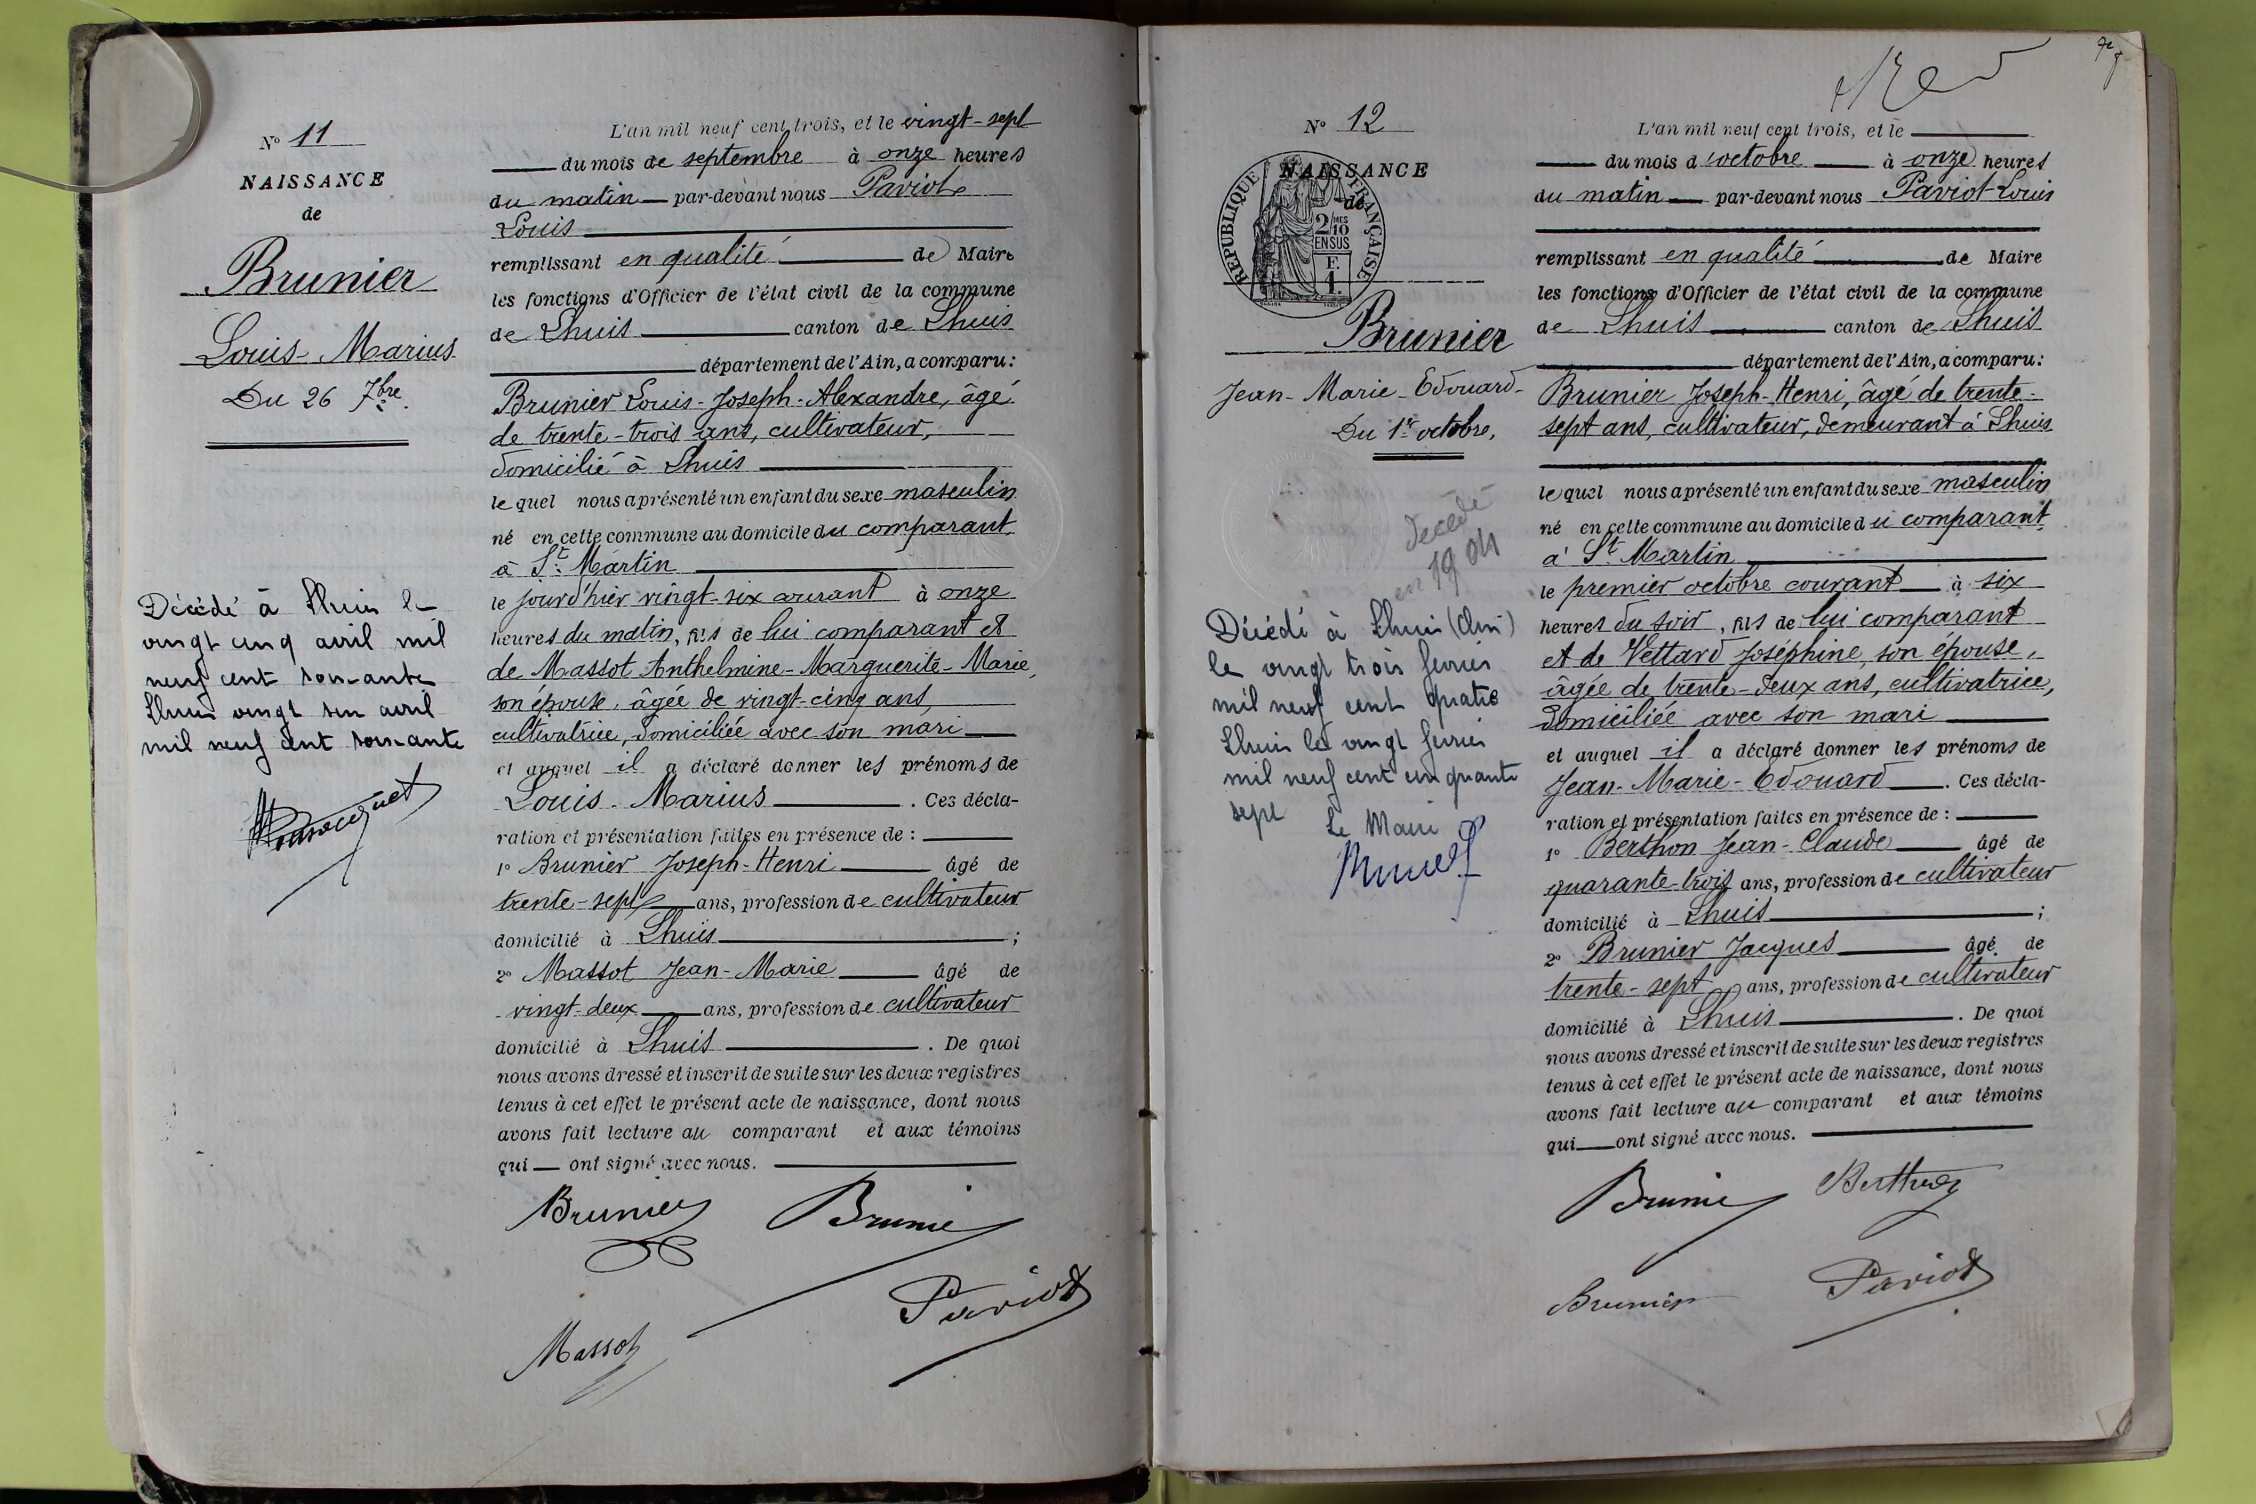 N° 11
NAISSANCE
de
Brunier
Louis-Marius
Du 26 7bre.
Décédé à Lhuis le
vingt cinq avril mil
neuf cent soixante
Lhuis vingt six avril
mil neuf cent soixante
L'an mil neuf cent trois, et le vingt-sept
du mois de septembre à onze heures
du matin par-devant nous Paviot
Louis
remplissant en qualité de Maire
les fonctions d'Officier de l'état civil de la commune
de Lhuis canton de Lhuis
département de l'Ain, a comparu:
Brunier Louis-Joseph-Alexandre, âgé
de trente-trois ans, cultivateur,
domicilié à Lhuis
le quel nous a présenté un enfant du sexe masculin
né en cette commune au domicile du comparant
à St. Martin
le jourd'hier vingt-six courant à onze
heures du matin, fils de lui comparant et
de Massot Anthelmine-Marguerite-Marie,
son épouse, âgée de vingt-cinq ans,
cultivatrice, domiciliée avec son mari
et auquel il a déclaré donner les prénoms de
Louis-Marius. Ces décla-
ration et présentation faites en présence de :
1° Brunier Joseph-Henri âgé de
trente-sept ans, profession de cultivateur
domicilié à Lhuis ;
2° Massot Jean-Marie âgé de
vingt-deux ans, profession de cultivateur
domicilié à Lhuis. De quoi
nous avons dressé et inscrit de suite sur les deux registres
tenus à cet effet le présent acte de naissance, dont nous
avons fait lecture au comparant et aux témoins
qui ont signé avec nous.
Brunier Brunier
Paviot
Massot
N° 12
NAISSANCE
de
RÉPUBLIQUE FRANÇAISE
2/10 MES
EN SUS
F.
1.
Brunier
Jean-Marie-Edouard
Du 1er octobre.
décédé
en 1904
Décédé à Lhuis (Ain)
le vingt trois février
mil neuf cent quatre
Lhuis le vingt février
mil neuf cent cinquante
sept
Le Maire
L'an mil neuf cent trois, et le
du mois d'octobre à onze heures
du matin par-devant nous Paviot Louis
remplissant en qualité de Maire
les fonctions d'Officier de l'état civil de la commune
de Lhuis canton de Lhuis
département de l'Ain, a comparu:
Brunier Joseph-Henri, âgé de trente-
sept ans, cultivateur, demeurant à Lhuis
le quel nous a présenté un enfant du sexe masculin
né en cette commune au domicile du comparant
à St. Martin
le premier octobre courant à six
heures du soir, fils de lui comparant
et de Vettard Joséphine, son épouse,
âgée de trente-deux ans, cultivatrice,
domiciliée avec son mari
et auquel il a déclaré donner les prénoms de
Jean-Marie-Edouard. Ces décla-
ration et présentation faites en présence de :
1° Berthon Jean-Claude âgé de
quarante-trois ans, profession de cultivateur
domicilié à Lhuis ;
2° Brunier Jacques âgé de
trente-sept ans, profession de cultivateur
domicilié à Lhuis. De quoi
nous avons dressé et inscrit de suite sur les deux registres
tenus à cet effet le présent acte de naissance, dont nous
avons fait lecture au comparant et aux témoins
qui ont signé avec nous.
Brunier Berthon
Brunier Paviot